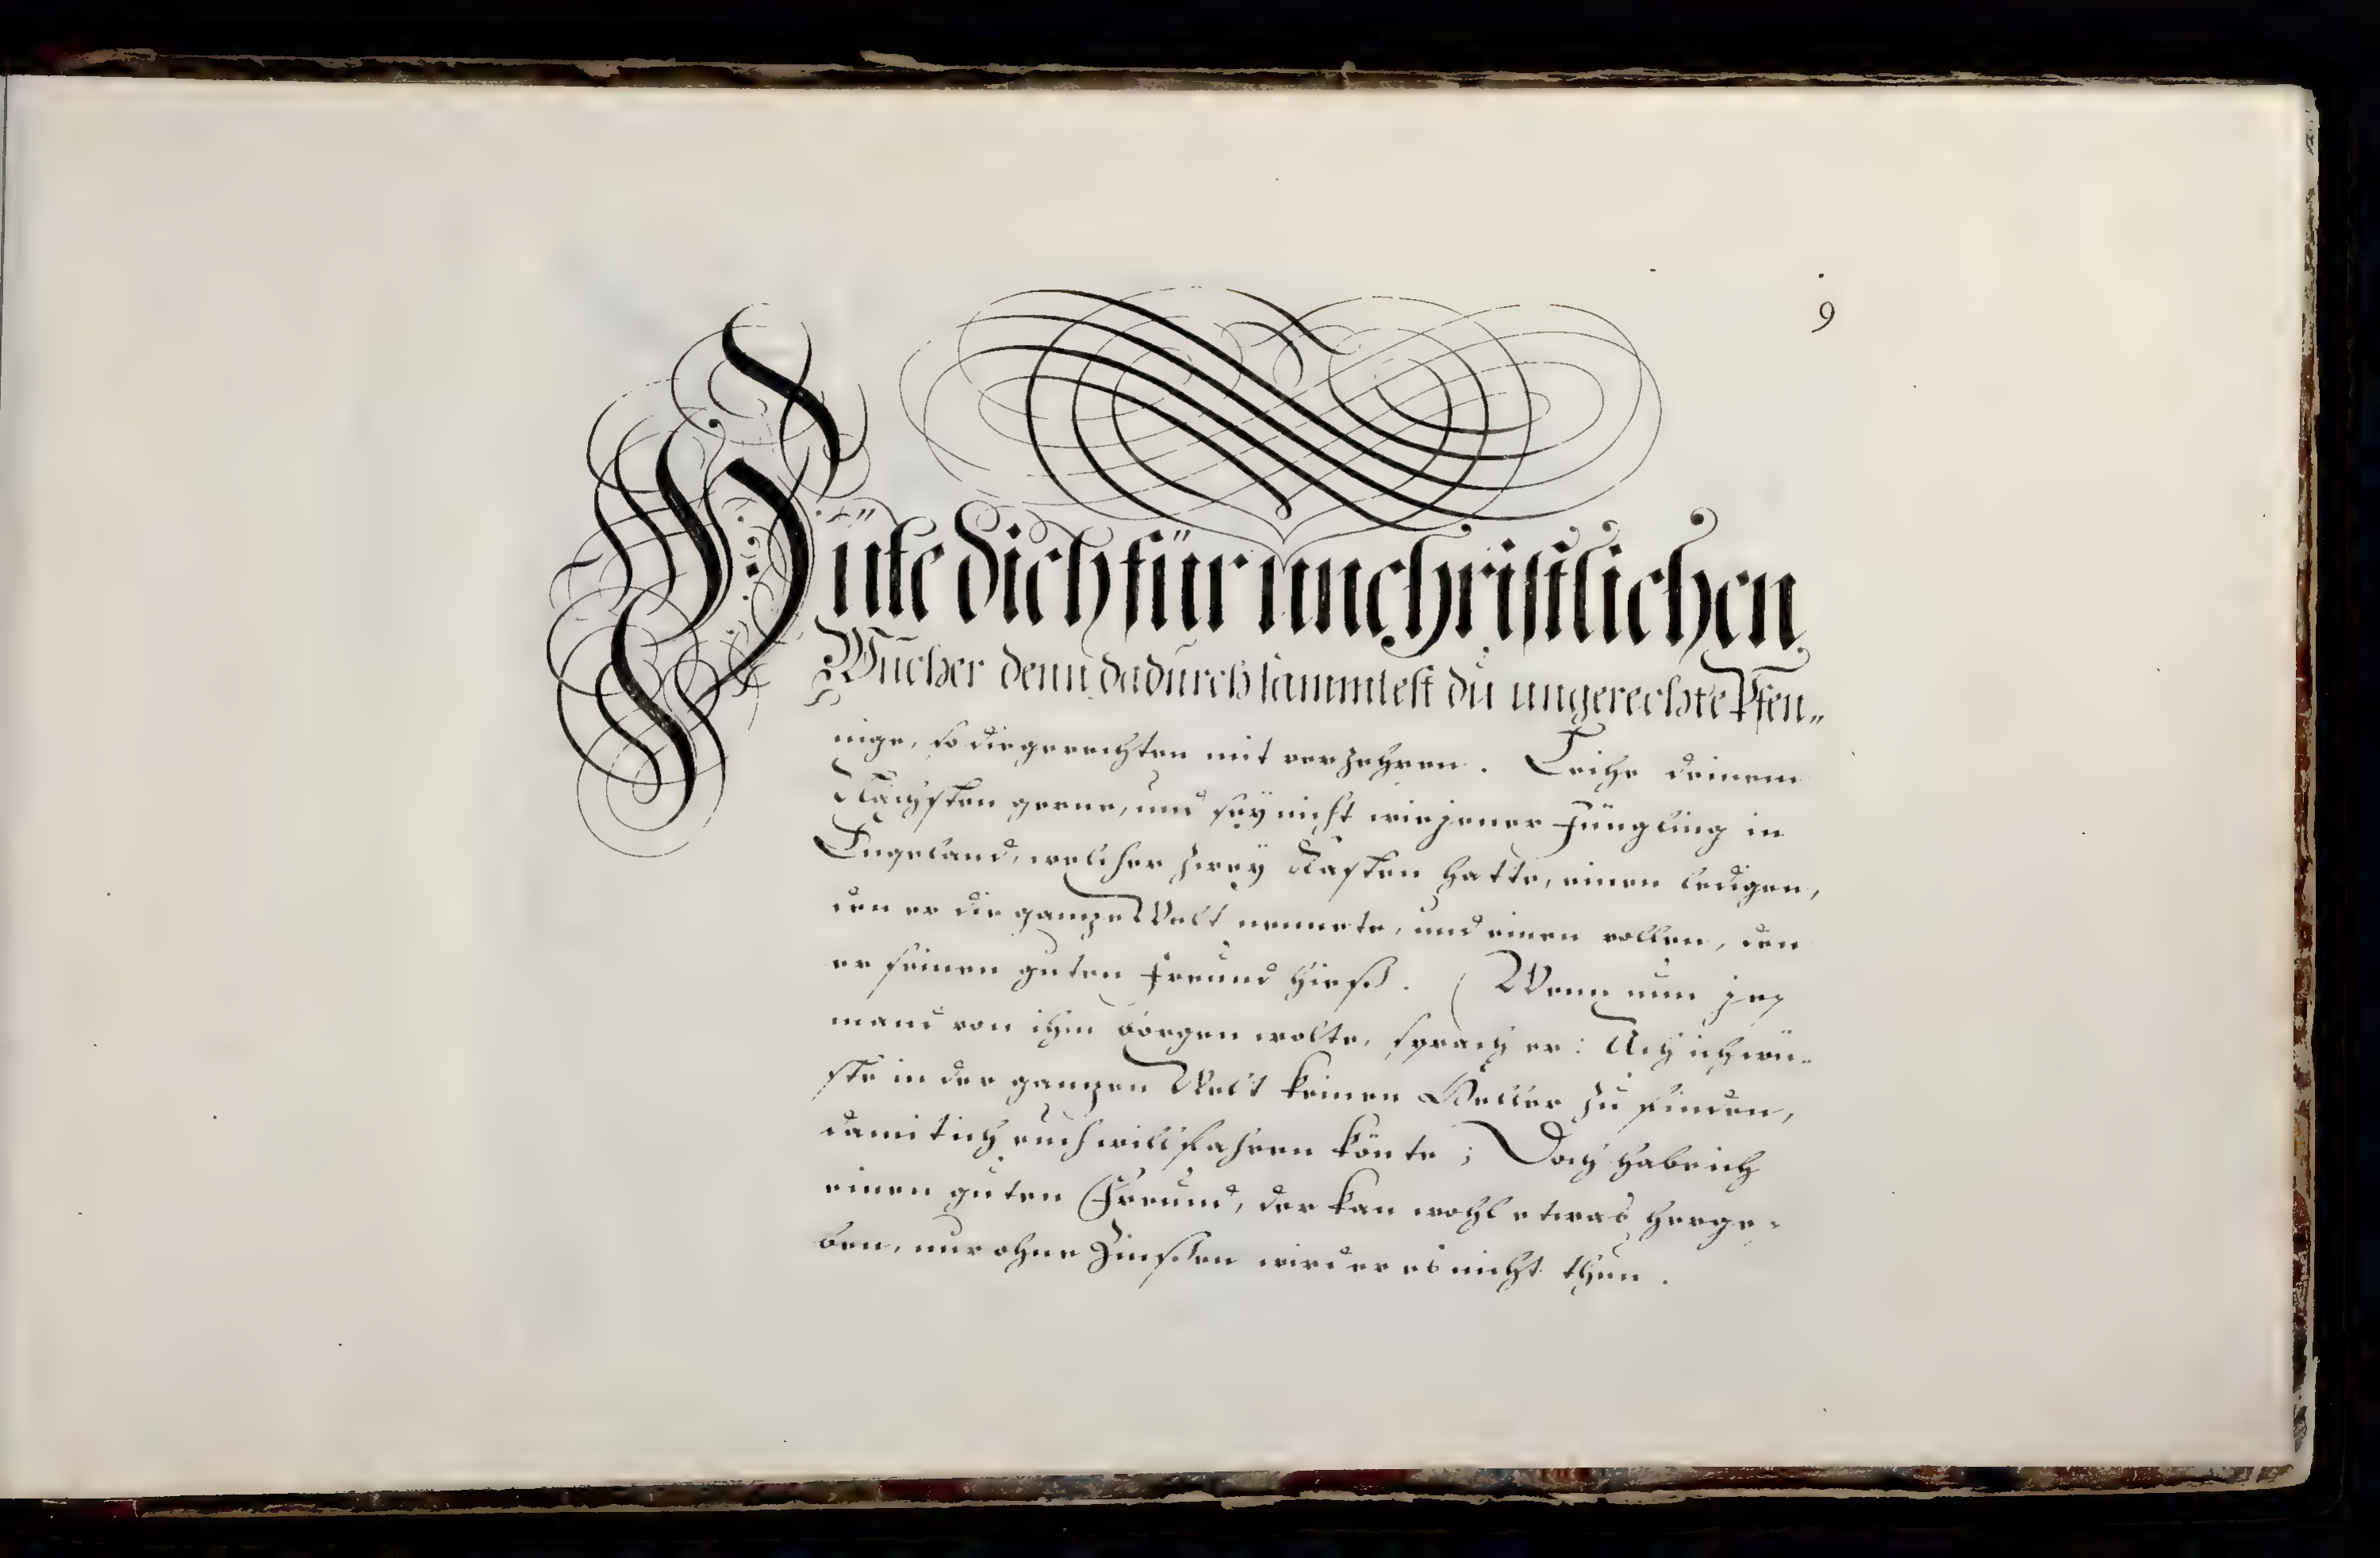 9
Hüte dich für unchristlichen
Wucher denn dadurch sammlest du ungerechte Pfen„
nige, so die gerechten mit verzehren. Leihe deinem
Nächsten gerne, und sey nicht wie jener Jüngling in
Engeland, welcher zwey Kasten hatte, einen ledigen,
den er die gantze Welt nennete, und einen vollen, den
er seinen guten Freund hieß. (Wenn nun je-
mand von ihm borgen wolte, sprach er: Ach ich wü„
ste in der gantzen Welt keinen Heller zu finden,
damit ich euch willfahren könte; Doch habe ich
einen guten Freund, der kan wohl etwas herge-
ben, nur ohne Zinßen wird er es nicht thun.